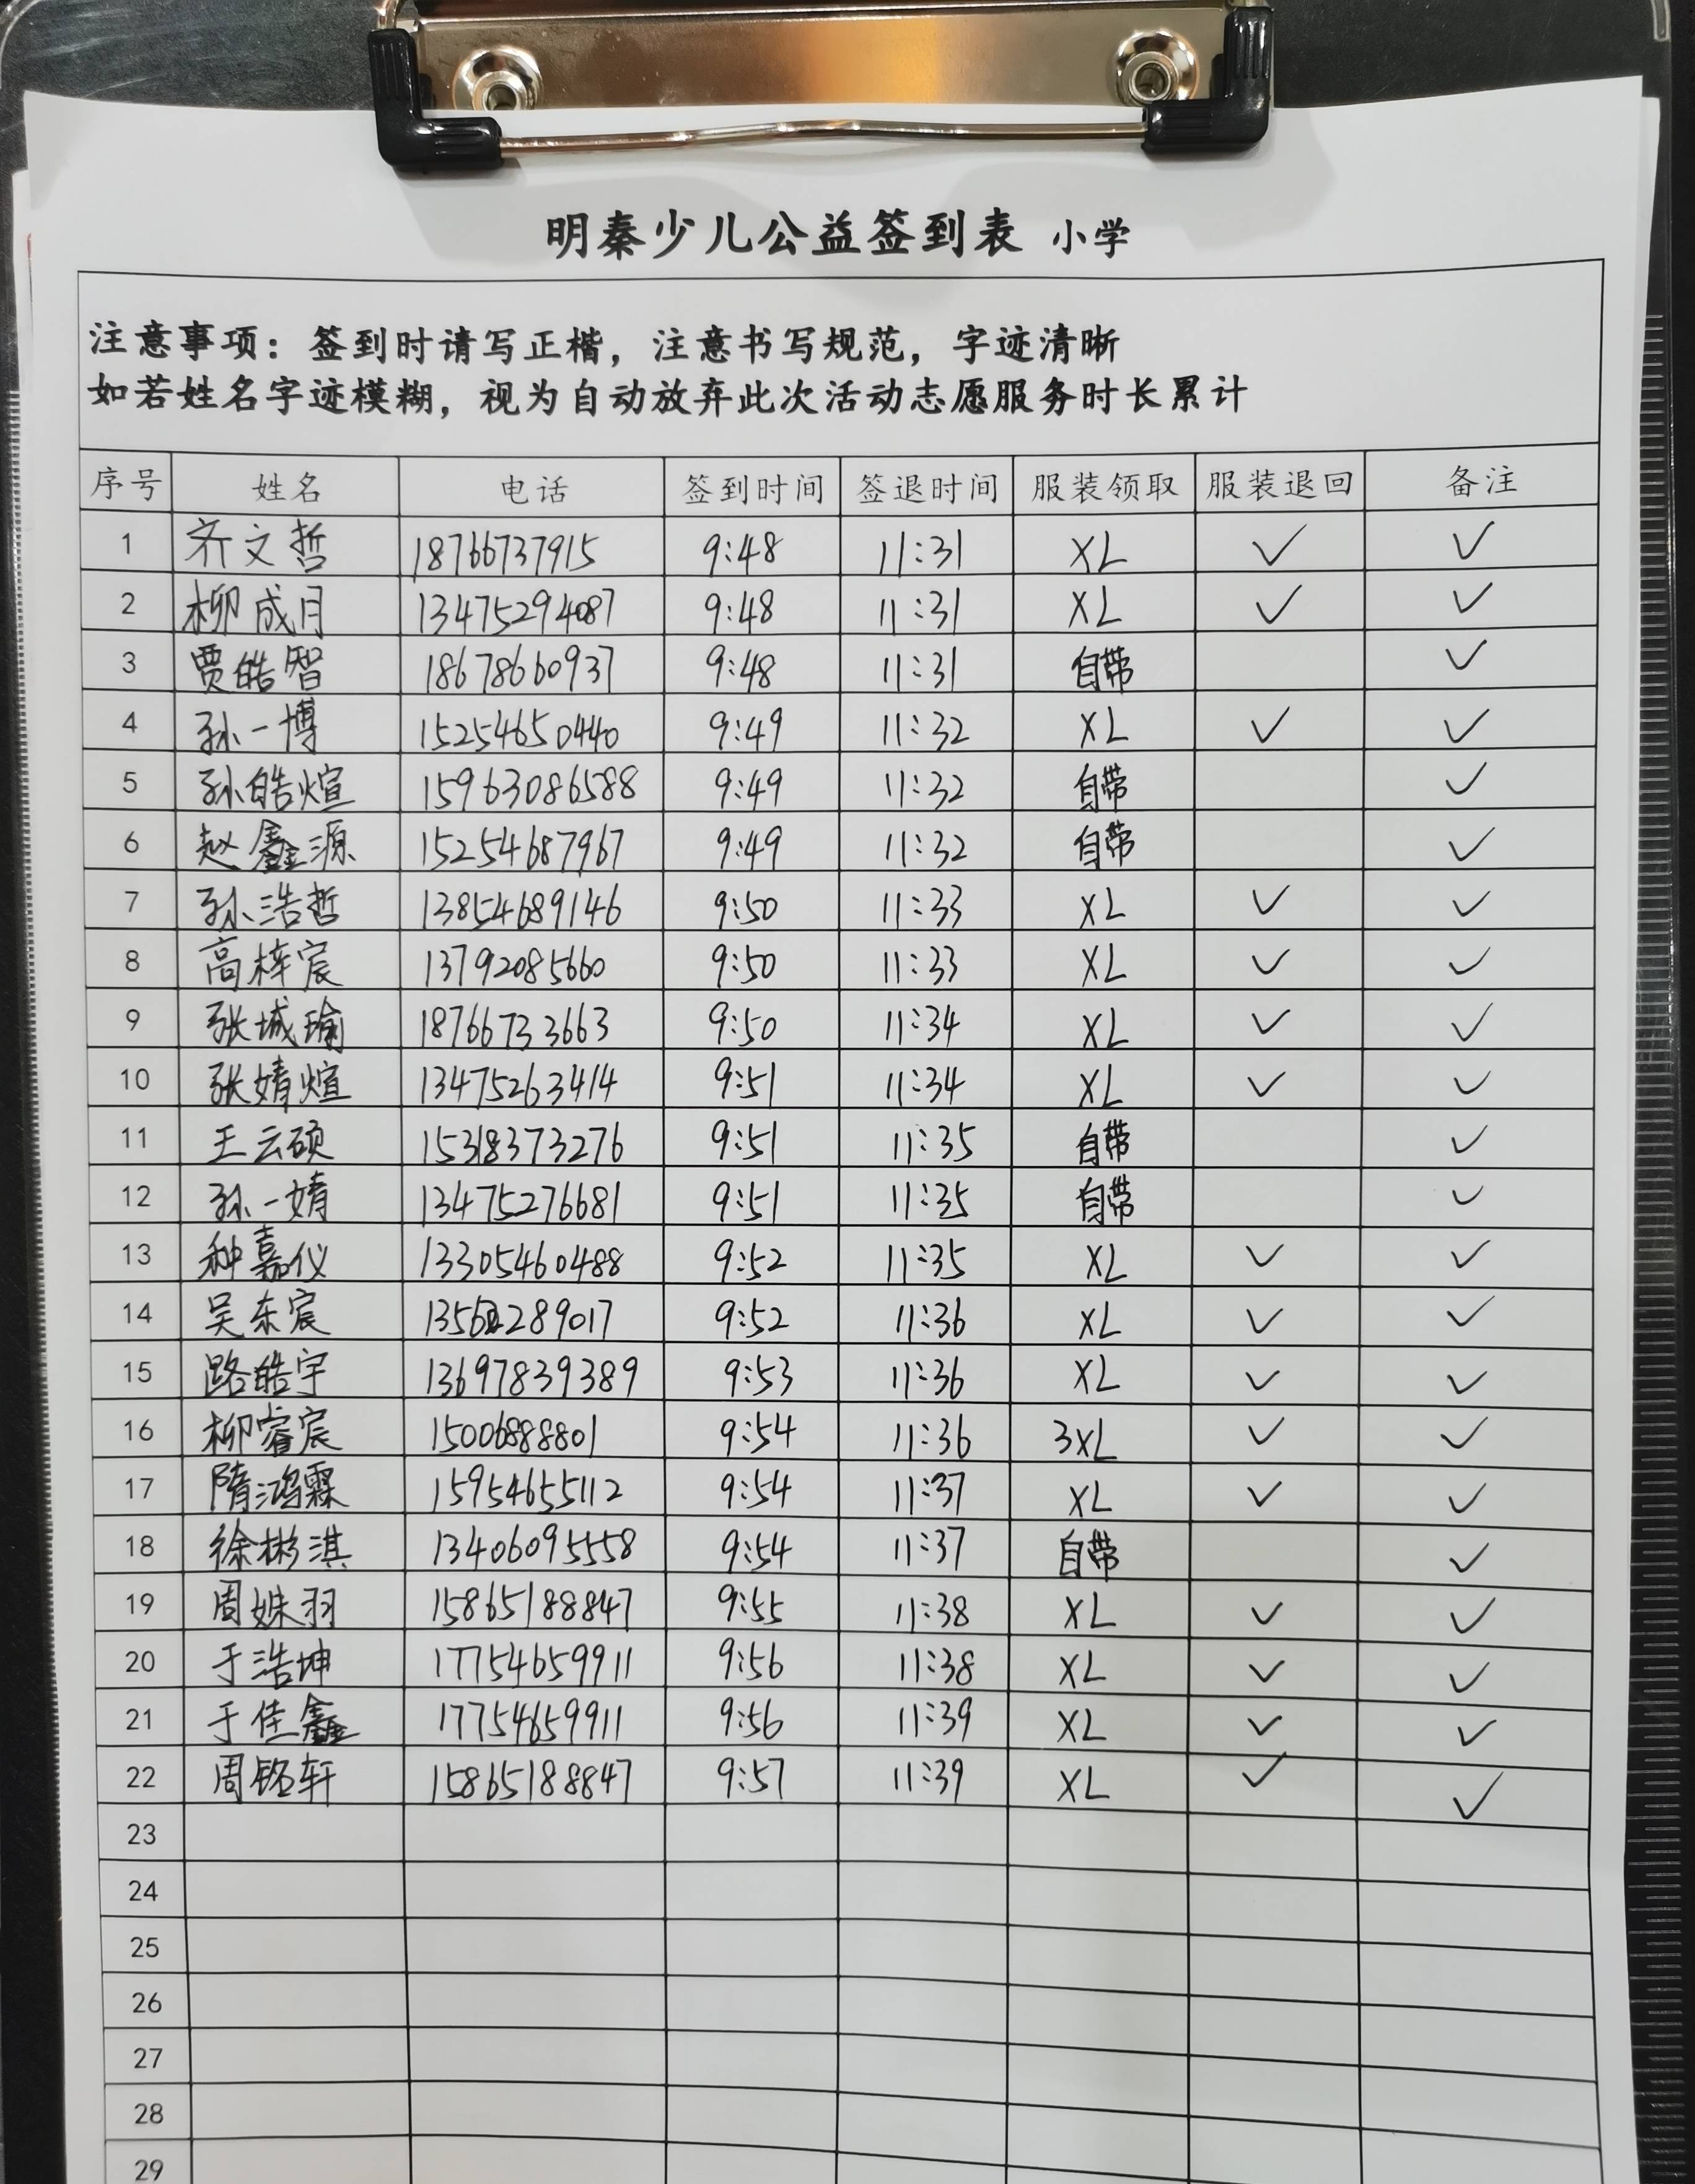 明秦少儿公益签到表 小学
注意事项：签到时请写正楷，注意书写规范，字迹清晰
如若姓名字迹模糊，视为自动放弃此次活动志愿服务时长累计
序号 姓名 电话 签到时间 签退时间 服装领取 服装退回 备注
1 齐文哲 18766737915 9:48 11:31 XL ✓ ✓
2 柳成月 13475294087 9:48 11:31 XL ✓ ✓
3 贾皓智 18678660937 9:48 11:31 自带 ✓
4 孙一博 15254650440 9:49 11:32 XL ✓ ✓
5 孙皓煊 15963086588 9:49 11:32 自带 ✓
6 赵鑫源 15254687967 9:49 11:32 自带 ✓
7 孙浩哲 13854689146 9:50 11:33 XL ✓ ✓
8 高梓宸 13792085660 9:50 11:33 XL ✓ ✓
9 张城瑜 18766733663 9:50 11:34 XL ✓ ✓
10 张婧煊 13475263414 9:51 11:34 XL ✓ ✓
11 王云硕 15318373276 9:51 11:35 自带 ✓
12 孙一婧 13475276681 9:51 11:35 自带 ✓
13 种嘉仪 13305460488 9:52 11:35 XL ✓ ✓
14 吴东宸 9:52 11:36 XL ✓ ✓
15 路皓宇 13697839389 9:53 11:36 XL ✓ ✓
16 柳睿宸 15006888801 9:54 11:36 3XL ✓ ✓
17 隋鸿霖 15954655112 9:54 11:37 XL ✓ ✓
18 徐彬淇 13406095558 9:54 11:37 自带 ✓
19 周姝羽 15865188847 9:55 11:38 XL ✓ ✓
20 于浩坤 17754659911 9:56 11:38 XL ✓ ✓
21 于佳鑫 17754659911 9:56 11:39 XL ✓ ✓
22 周铭轩 15865188847 9:57 11:39 XL ✓ ✓
23
24
25
26
27
28
29